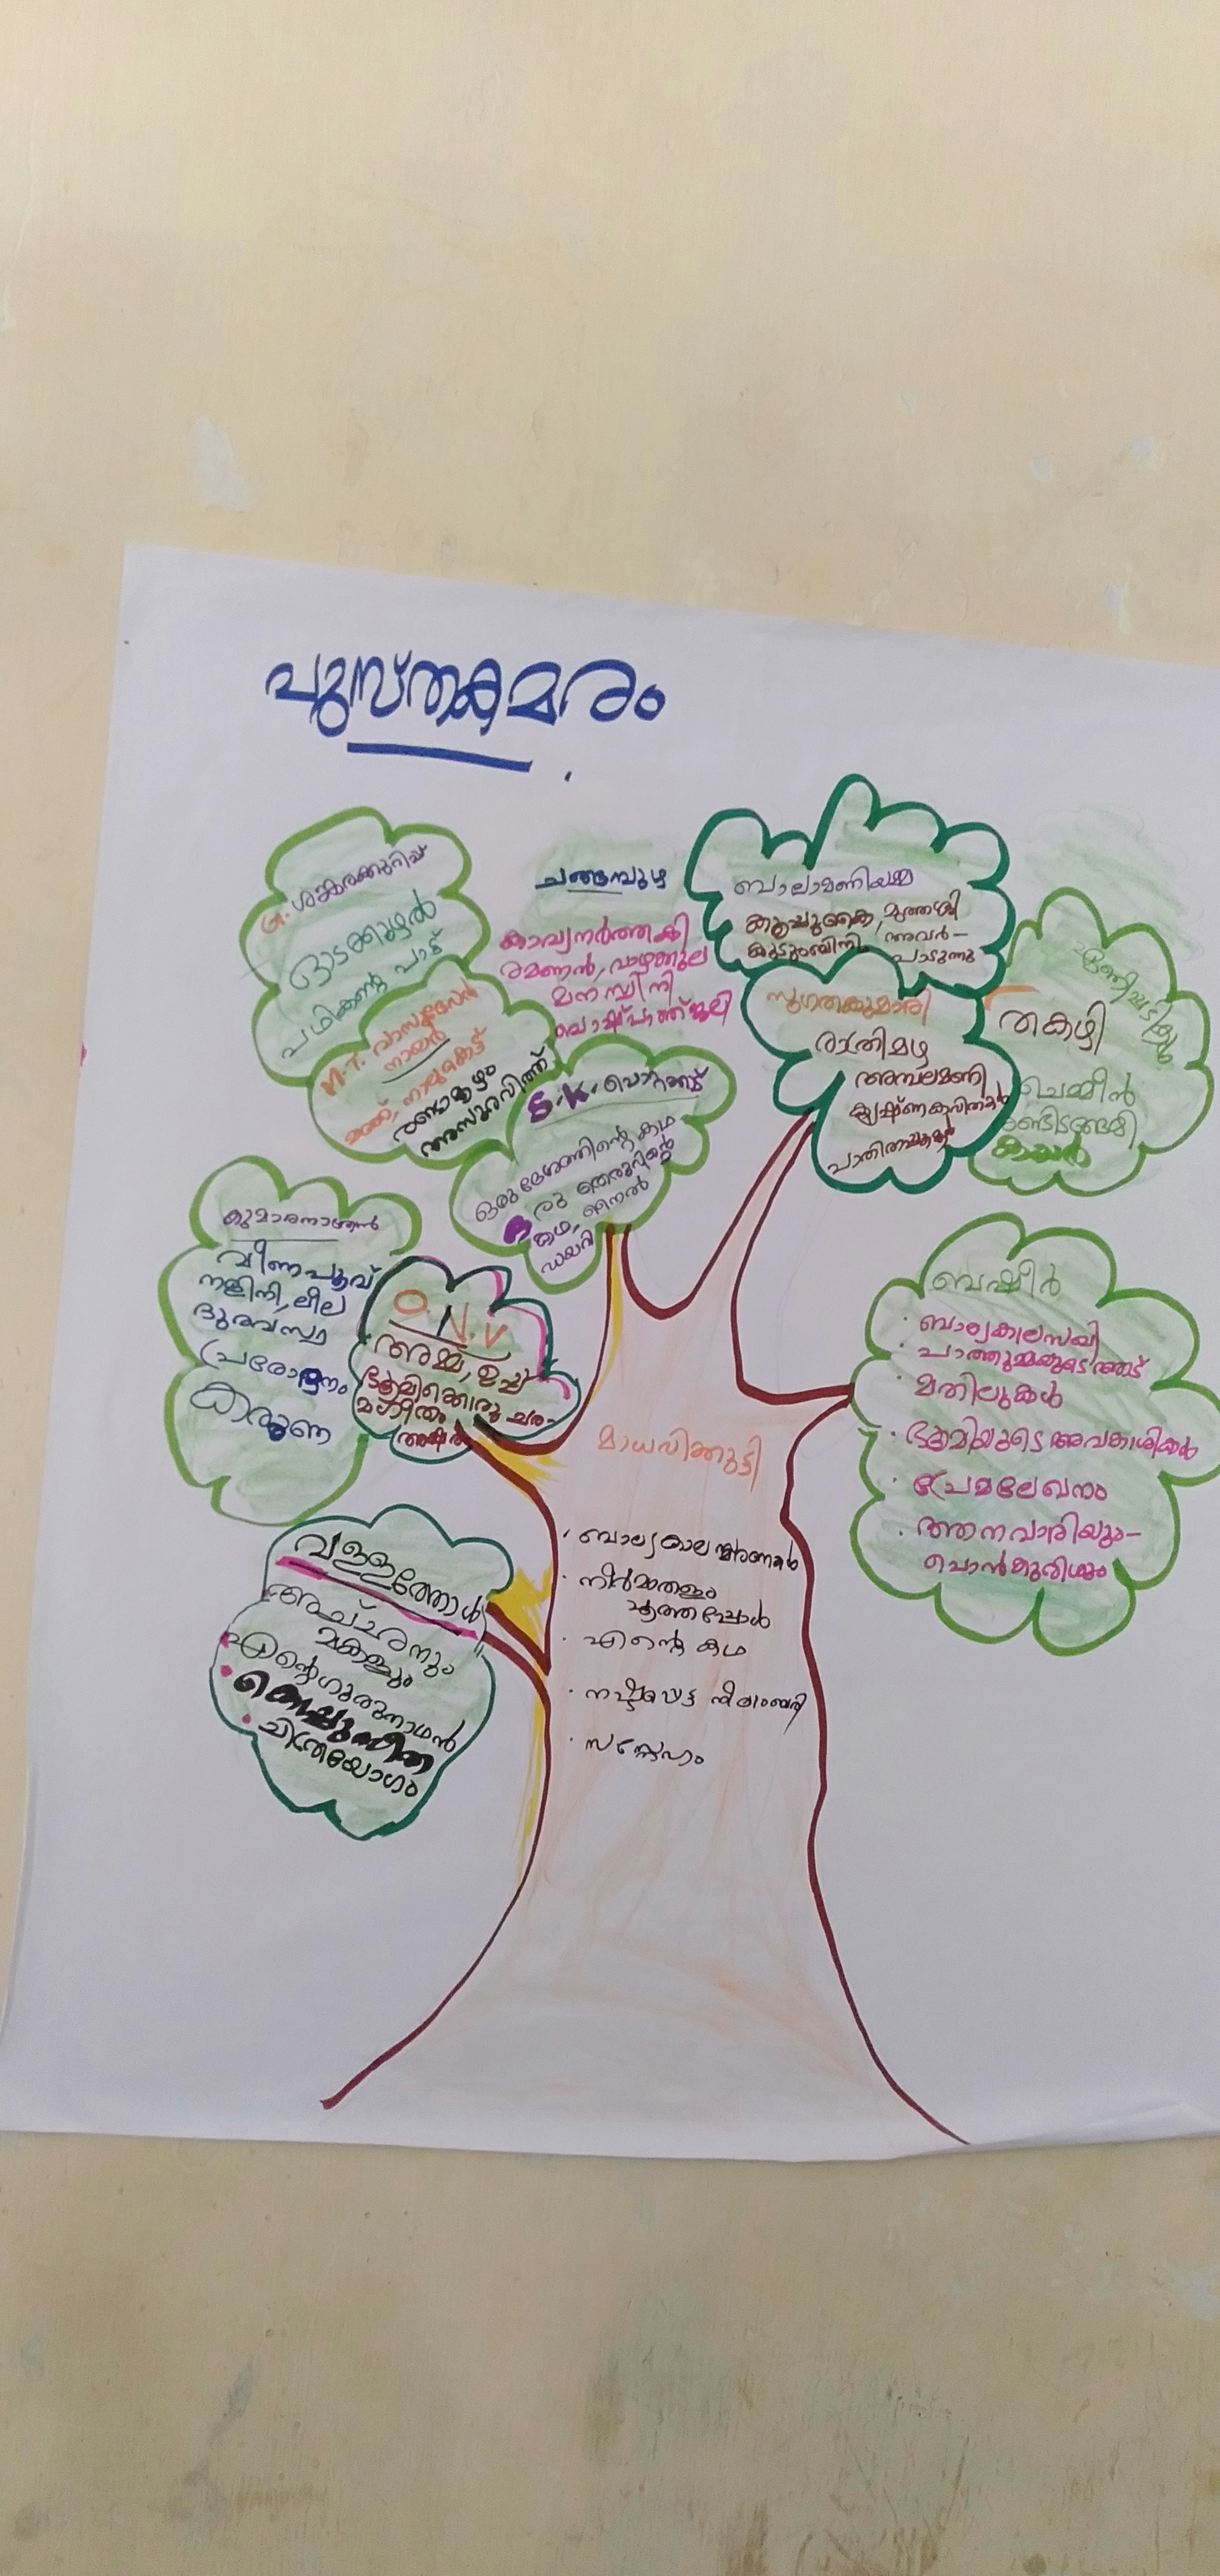 പുസ്തകമരം
G. ശങ്കരക്കുറുപ്പ്
ഓടക്കുഴൽ
പഥികന്റെ പാട്ട്
M.T. വാസുദേവൻ
നായർ
മഞ്ഞ്, നാലുകെട്ട്
രണ്ടാമൂഴം
അസുരവിത്ത്
ചങ്ങമ്പുഴ
കാവ്യനർത്തകി
രമണൻ, വാഴക്കുല
മനസ്വിനി
S.K. പൊറ്റക്കാട്
ഒരു ദേശത്തിന്റെ കഥ
രു തെരുവിന്റെ
കഥ, നൈൽ
ഡയറി
ബാലാമണിയമ്മ
കൂപ്പുകൈ, മുത്തശ്ശി
കുടുംബിനി, അവർ-
പാടുന്നു
സുഗതകുമാരി
രാത്രിമഴ
അമ്പലമണി
കൃഷ്ണകവിതകൾ
തകഴി
ചെമ്മീൻ
കയർ
കുമാരനാശാൻ
വീണപൂവ്
നളിനി, ലീല
ദുരവസ്ഥ
പ്രരോദനം
കരുണ
O.N.V
അമ്മ, ഉപ്പ്
ഭൂമിക്കൊരു ചര-
മഗീതം
അക്ഷരം
ബഷീർ
· ബാല്യകാലസഖി
· പാത്തുമ്മയുടെ ആട്
· മതിലുകൾ
· ഭൂമിയുടെ അവകാശികൾ
· പ്രേമലേഖനം
· ആനവാരിയും-
പൊൻകുരിശും
മാധവിക്കുട്ടി
· ബാല്യകാല സ്മരണകൾ
· നീർമാതളം
പൂത്തപ്പോൾ
· എന്റെ കഥ
· നഷ്ടപ്പെട്ട നീലാംബരി
· സ്നേഹം
വള്ളത്തോൾ
അച്ഛനും
മകളും
എന്റെ ഗുരുനാഥൻ
കൊച്ചുസീത
ചിത്രയോഗം